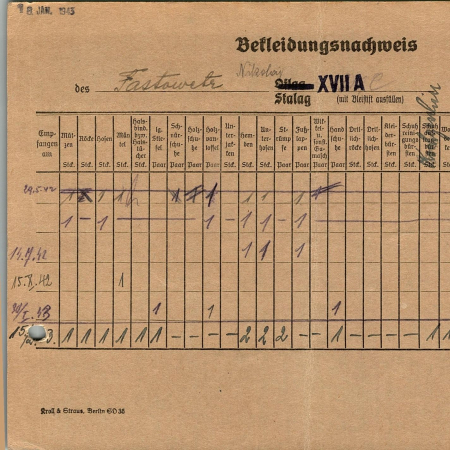 18. JAN. 1943
Bekleidungsnachweis
Nikolai
des Fastowetz Oflag XVII A C
Stalag (mit Bleistift ausfüllen)
Empfangen am Mützen Röcke Hosen Mäntel Halsbind. bzw. Halstücher lg. Stiefel Schnürschuhe Holzschuhe Holzpantoffel Unterjacken Hemden Unterhosen Strümpfe Fußlappen Handschuhe Drillichröcke Drillichhosen
Stck. Stck. Stck. Stck. Stck. Paar Paar Paar Paar Stck. Stck. Stck. Paar Paar Paar Paar Stck. Stck. Stck. Stck. Stck.
29.5.42 1 1 1 1 1 1 1
1 – 1 – – – – – 1 – 1 1 – 1
14. 42 1 1 1
15.X.42 1
I.43 1 1 1
15. 3. 1 1 1 1 1 1 – – – – 2 2 2 – – 1 – – – – 1
Kroll & Straus, Berlin SO 36